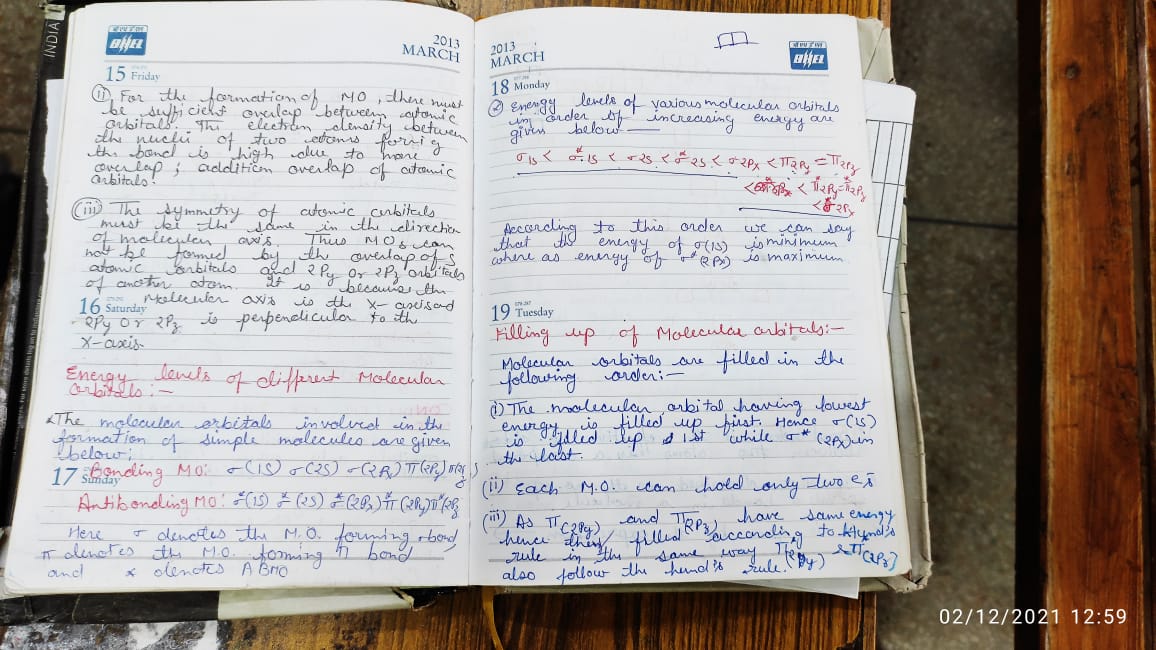 INDIA
BHEL
2013
MARCH
15 Friday
(ii) For the formation of MO, there must
be sufficient overlap between atomic
orbitals. The electron density between
the nuclei of two atoms forming
the bond is high due to more
overlap; addition overlap of atomic
orbitals.
(iii) The symmetry of atomic orbitals
must be the same in the direction
of molecular axis. Thus MOs can
not be formed by the overlap of s
atomic orbitals and 2Py or 2Pz orbitals
of another atom. It is because the
16 Saturday
Molecular axis is the x-axis and
2Py or 2Pz is perpendicular to the
x-axis
Energy levels of different Molecular
orbitals:-
*The molecular orbitals involved in the
formation of simple molecules are given
below:
17 Sunday
Bonding MO: σ(1S) σ(2S) σ(2Px) π(2Py) π(2z)
Antibonding MO: σ*(1S) σ*(2S) σ*(2Px) π*(2Py) π*(2Pz
Here σ denotes the M.O. forming σ bond,
π denotes the M.O. forming π bond
and * denotes ABMO
2013
MARCH
BHEL
18 Monday
* Energy levels of various molecular orbitals
in order of increasing energy are
given below —
σ1s < σ*1s < σ2s < σ*2s < σ2Px < π2Py = π2Pz
< π*2Py = π*2Pz
< σ*2Px
According to this order we can say
that the energy of σ(1S) is minimum
where as energy of σ*(2Px) is maximum
19 Tuesday
Filling up of Molecular orbitals:-
Molecular orbitals are filled in the
following order:-
(i) The molecular orbital having lowest
energy is filled up first. Hence σ(1S)
is filled up 1st while σ*(2Px) in
the last.
(ii) Each M.O. can hold only two es
(iii) As π(2Py) and π(2Pz) have same energy
hence they filled according to Hund's
rule in the same way π*(2Py) & π*(2Pz)
also follow the hund's rule.
02/12/2021 12:59